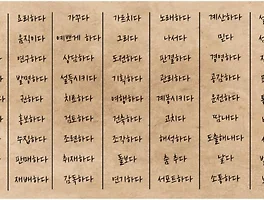 요리하다 가꾸다 가르치다 노래하다 계산하다
움직이다 예쁘게 하다 그리다 나서다 믿다
연구하다 상상하다 도전하다 판결하다 경영하다
발명하다 설득시키다 기획하다 관리하다 공감하다
권하다 치료하다 여행하다 계몽시키다 운전하다
홍보하다 검토하다 건축하다 고치다 땀내다
수집하다 조련하다 조각하다 해석하다 도출해내다
판매하다 취재하다 돌보다 춤 추다 날다
재배하다 감독하다 연기하다 서포트하다 소통하다